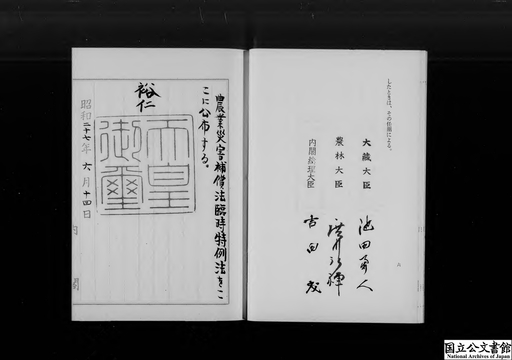 農業災害補償法臨時特例法をこ
こに公布する。
裕仁
天皇
御璽
昭和二十七年六月十四日
内閣
したときは、その任期による。
大蔵大臣 池田勇人
農林大臣 廣川弘禪
内閣総理大臣 吉田茂
国立公文書館
National Archives of Japan